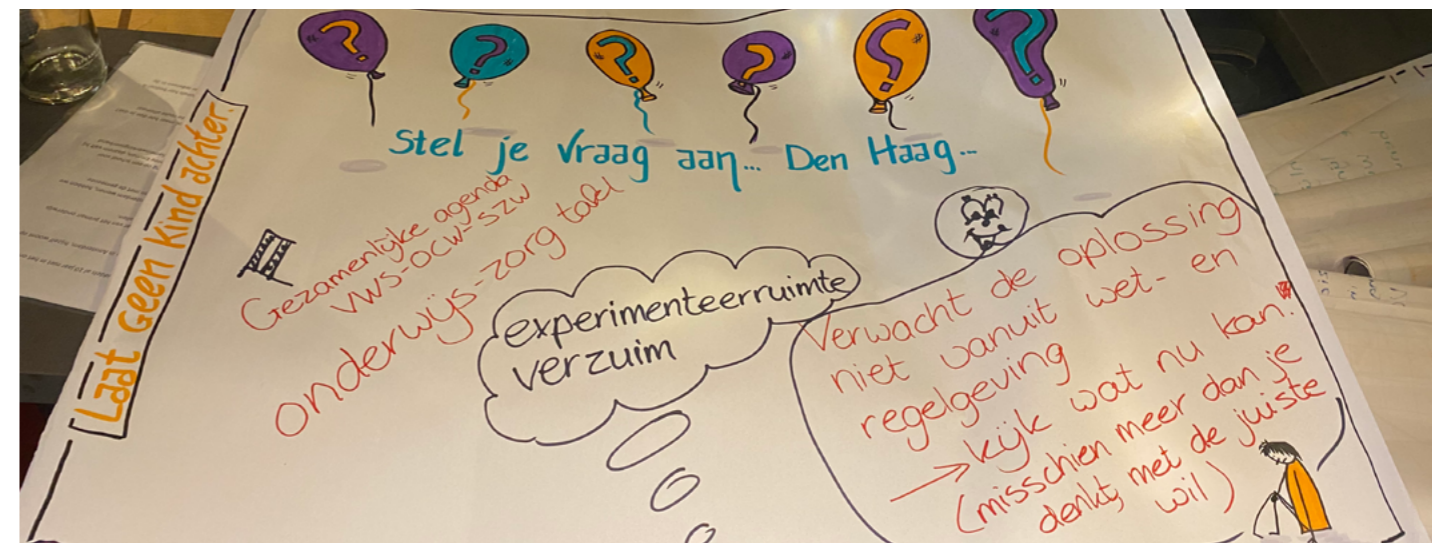 Laat geen kind achter.
Stel je vraag aan... Den Haag...
Gezamenlijke agenda
VWS-OCW-SZW
onderwijs-zorg tafel
experimenteerruimte
verzuim
Verwacht de oplossing
niet vanuit wet- en
regelgeving
→ kijk wat nu kan!
(misschien meer dan je
denkt, met de juiste
wil)